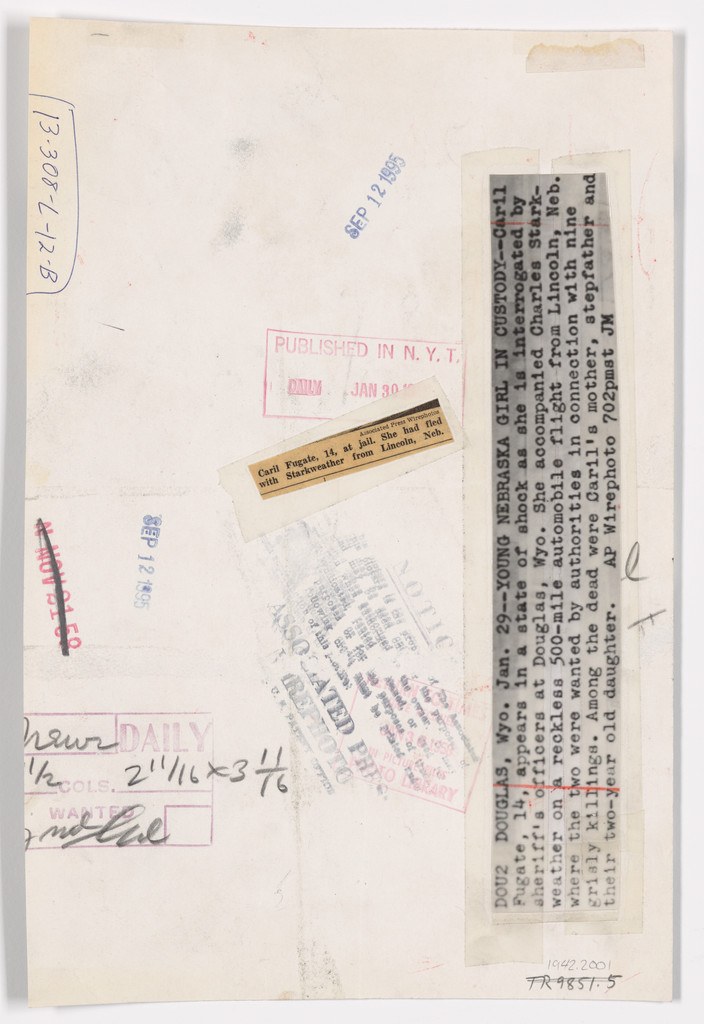 13-308-L-12-B
SEP 12 1995
PUBLISHED IN N. Y. T.
DAILY JAN 30
Associated Press Wirephotos
Caril Fugate, 14, at jail. She had fled
with Starkweather from Lincoln, Neb.
DOU2 DOUGLAS, Wyo. Jan. 29--YOUNG NEBRASKA GIRL IN CUSTODY--Caril
Fugate, 14, appears in a state of shock as she is interrogated by
sheriff's officers at Douglas, Wyo. She accompanied Charles Stark-
weather on a reckless 500-mile automobile flight from Lincoln, Neb.
where the two were wanted by authorities in connection with nine
grisly killings. Among the dead were Caril's mother, stepfather and
their two-year old daughter. AP Wirephoto 702pmst JM
NOV 21 59
SEP 12 1995
NOTIC
ASSOCIATED PRE
WIREPHOTO
LIBRARY
DAILY
1/2 COLS. 2 11/16 x 3 11/16
WANTED
1942.2001
TR9851.5